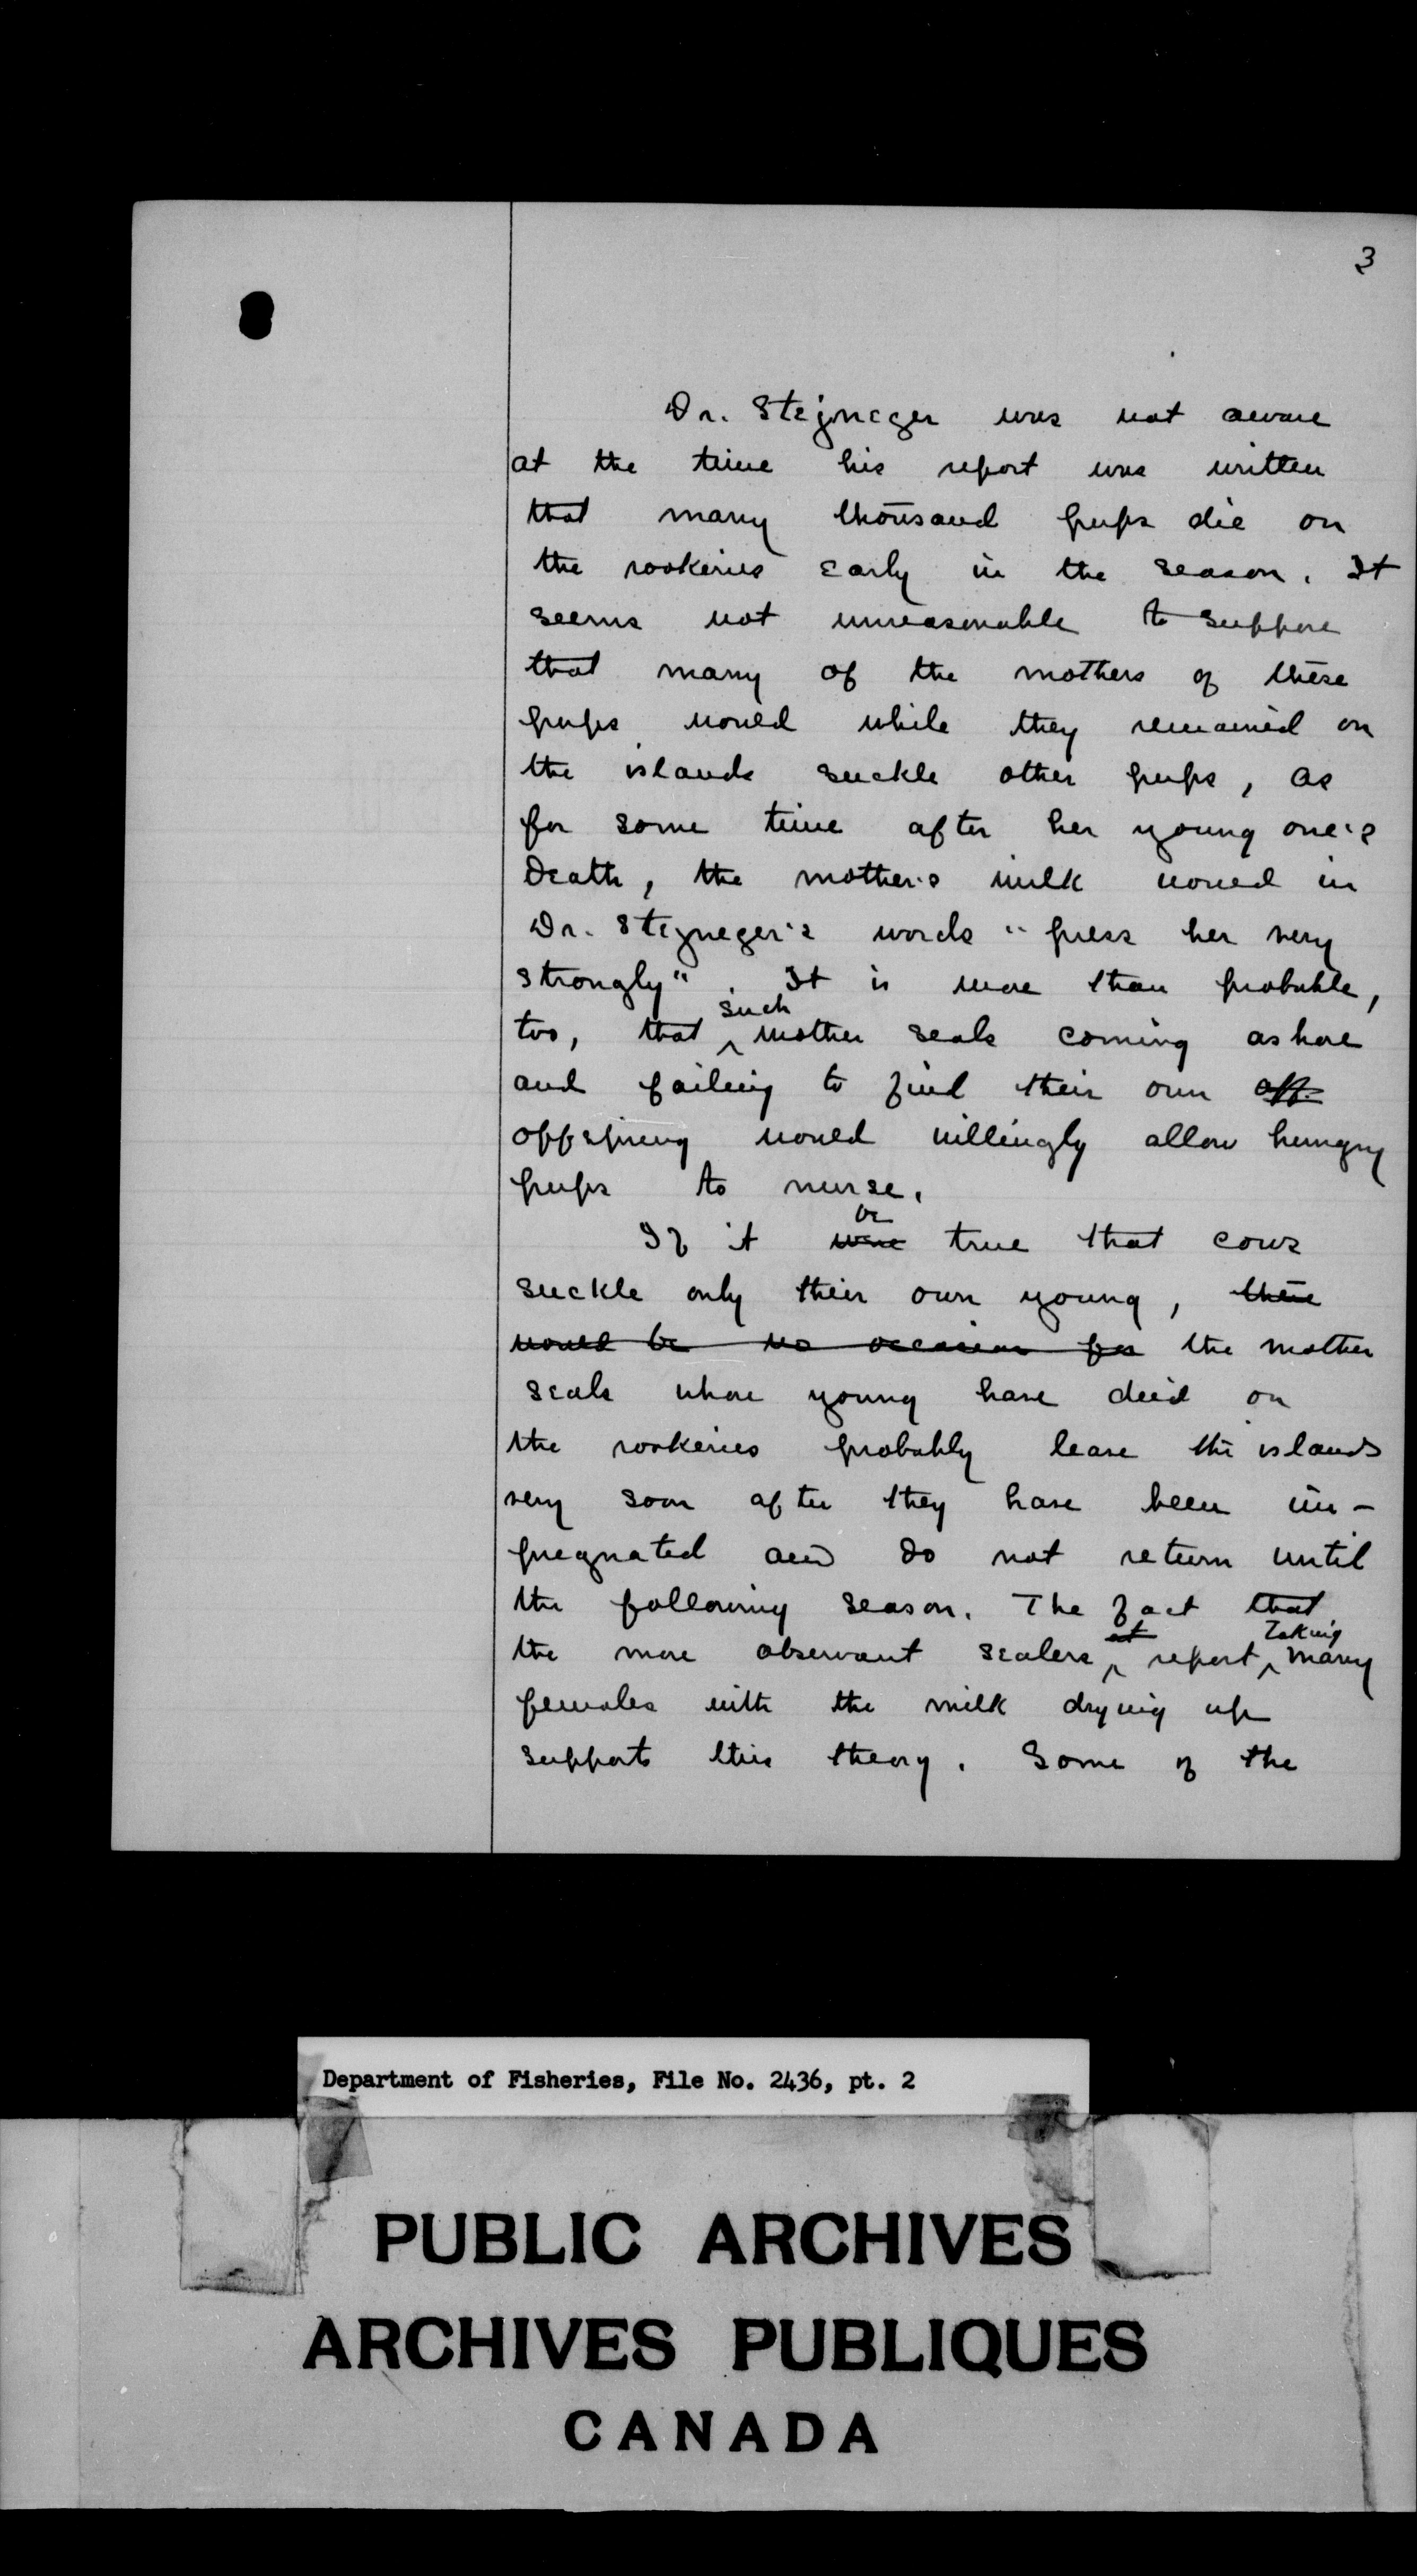 3
Dr. Stejneger was not aware
at the time his report was written
that many thousand pups die on
the rookeries early in the season. It
seems not unreasonable to suppose
that many of the mothers of these
pups would while they remained on
the islands suckle other pups, as
for some time after her young one's
death, the mother's milk would in
Dr. Stejneger's words "press her very
strongly". It is more than probable,
such
too, that mother seals coming ashore
and failing to find their own off-
offspring would willingly allow hungry
pups to nurse.
be
If it were true that cows
suckle only their own young, there
would be no occasion for the mother
seals whose young have died on
the rookeries probably leave the islands
very soon after they have been im-
pregnated and do not return until
the following season. The fact that
at taking
the more observant sealers report many
females with the milk drying up
supports this theory. Some of the
Department of Fisheries, File No. 2436, pt. 2
PUBLIC ARCHIVES
ARCHIVES PUBLIQUES
CANADA